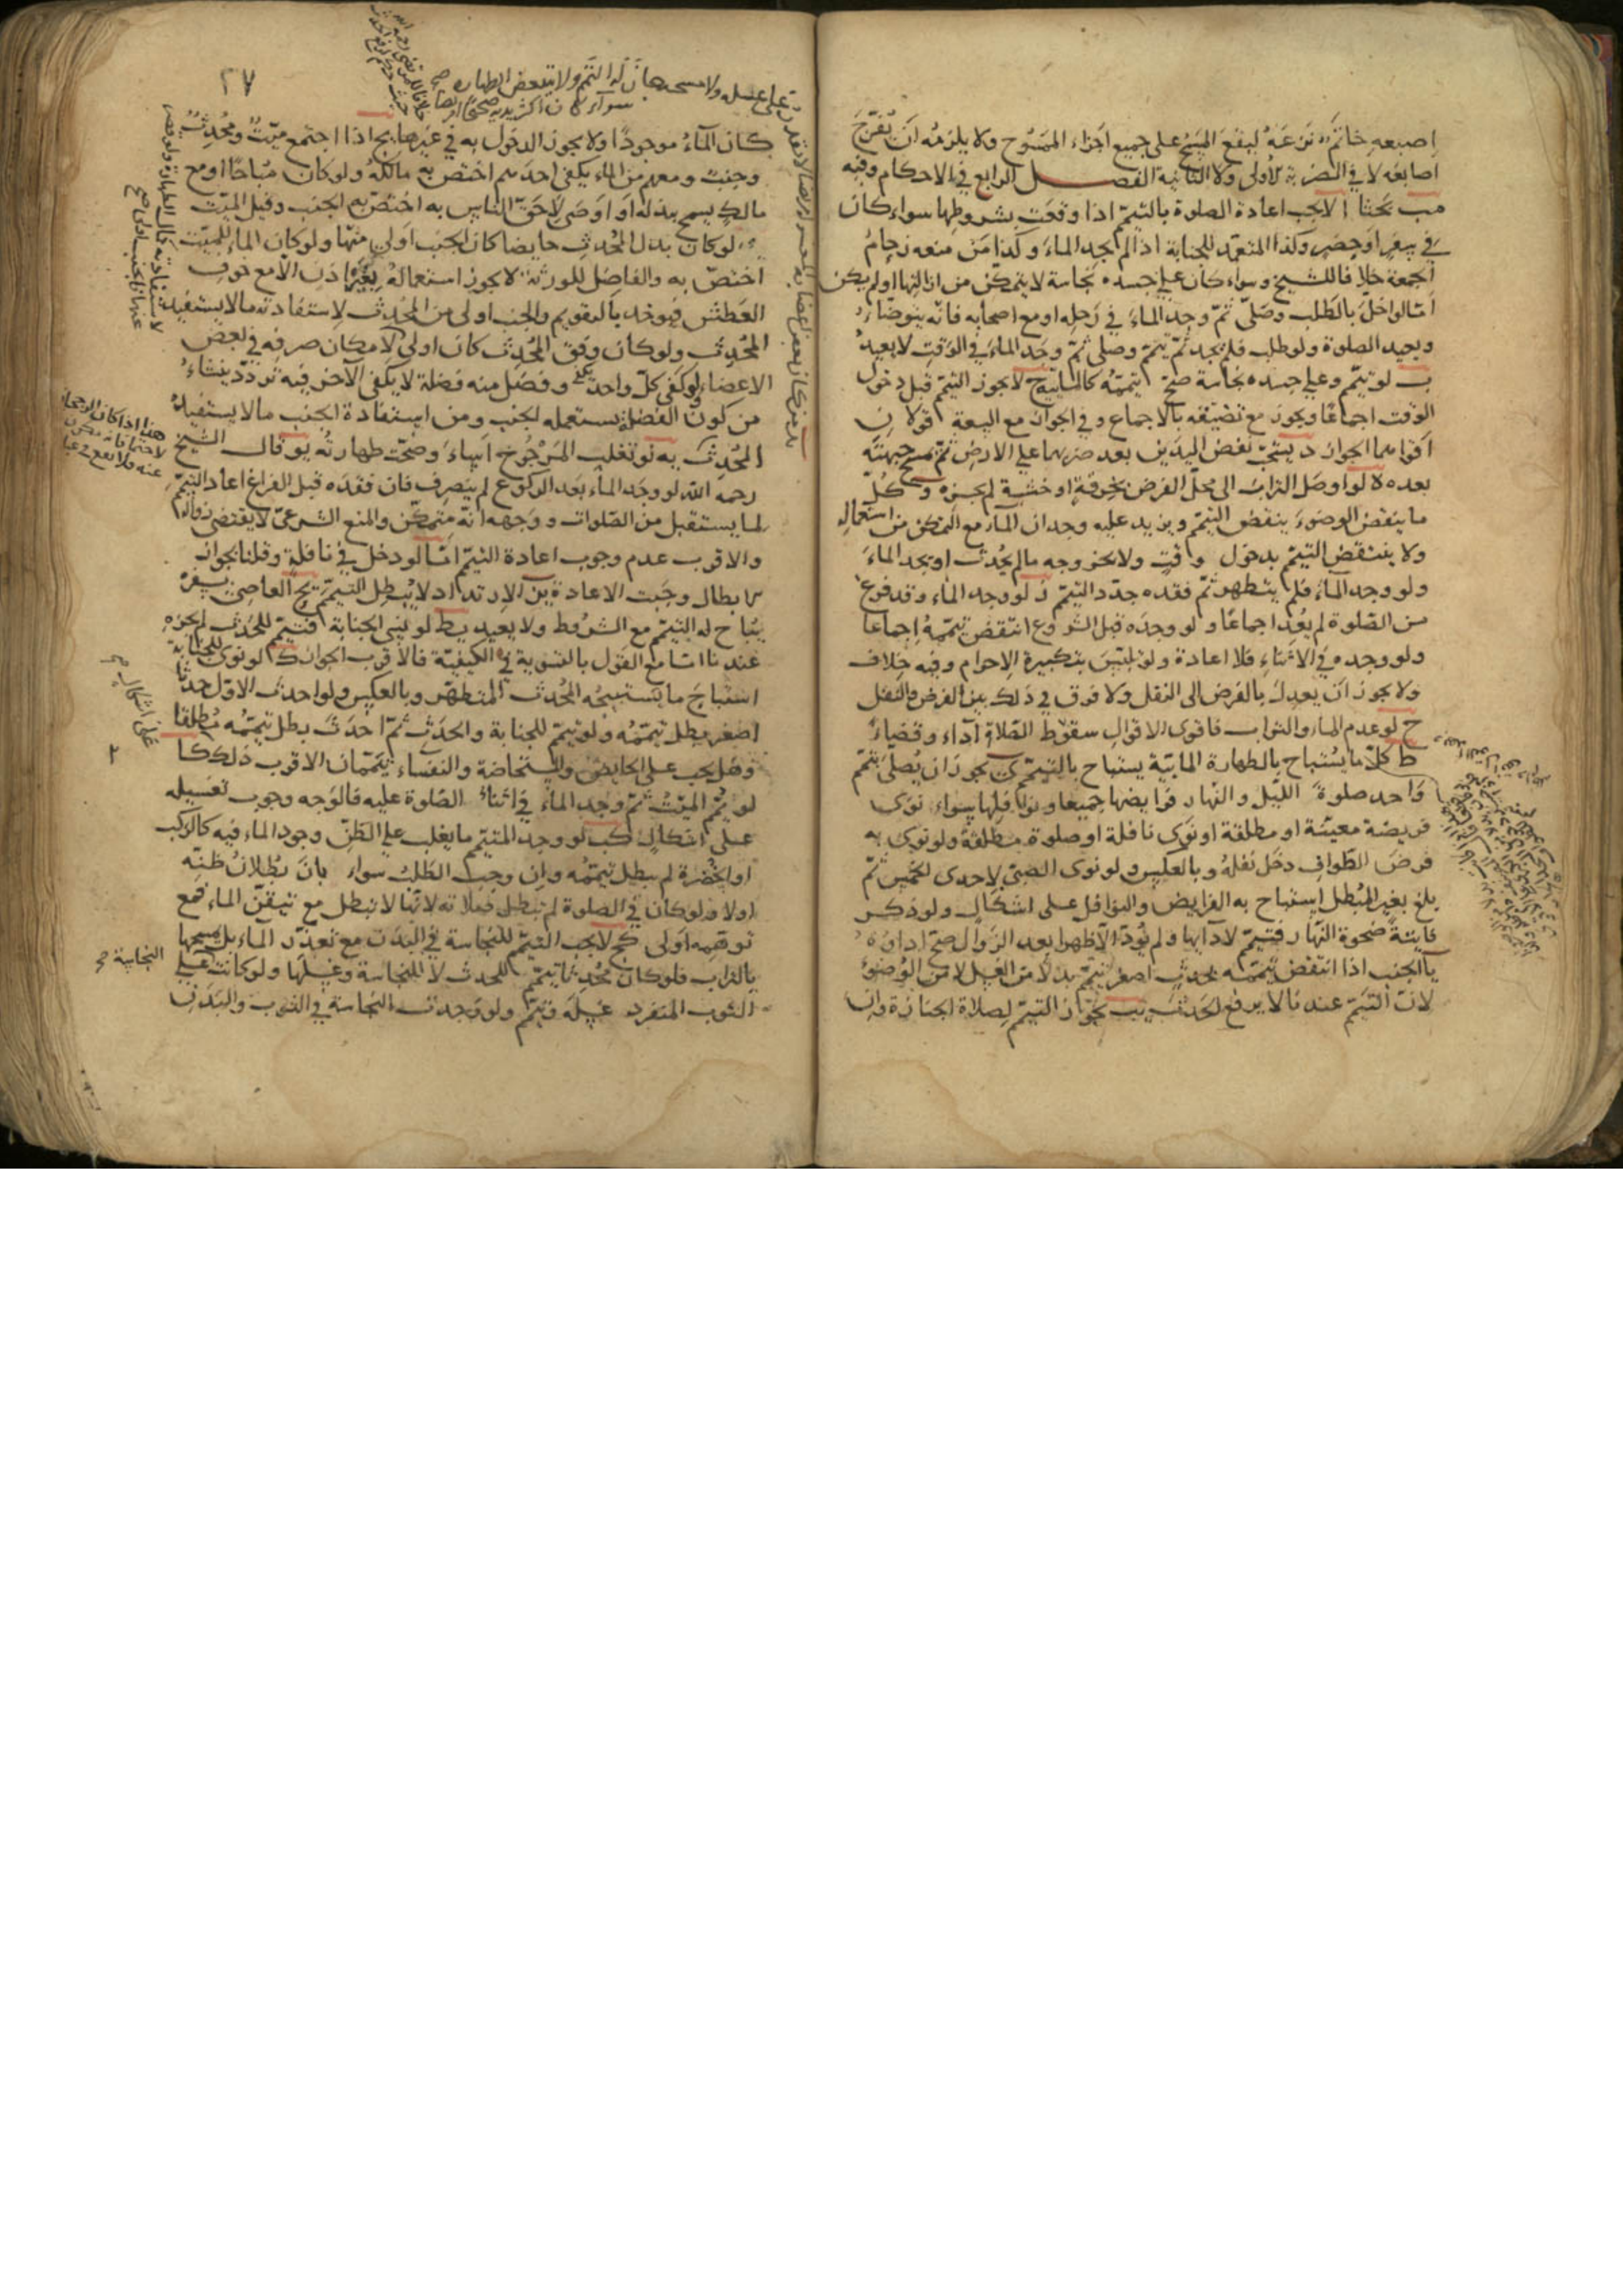 اصبعه خاتم نزعه ليقع المسح على جميع اجزاء الممسوح ولا يلزمه ان يفرّج
اصابعه لا في الضربة الاولى ولا الثانية الفصل الرابع في الاحكام وفيه
مب بحثا ا لا يجب اعادة الصلوة بالتيمّم اذا وقعت بشروطها سواء كان
في سفر او حضر وكذا المتعمد للجنابة اذا لم يجد الماء وكذا من منعه زحام
الجمعة خلافا للشيخ وسواء كان على جسده نجاسة لا يتمكن من ازالتها او لم يكن
امّا لو اخلّ بالطلب وصلّى ثمّ وجد الماء في رحله او مع اصحابه فانه يتوضّأ
ويعيد الصلوة ولو طلب فلم يجد ثمّ تيمّم وصلى ثمّ وجد الماء في الوقت لا يعيد
ب لو تيمّم وعلى جسده نجاسة صحّ تيمّمه كالمائية ج لا يجوز التيمّم قبل دخول
الوقت اجماعًا ويجوز مع تضيّقه بالاجماع وفي الجواز مع السعة قولان
اقواهما الجواز د يستحبّ نفض اليدين بعد ضربهما على الارض ثمّ مسح جبهته
بعده ه لو اوصل التراب الى محلّ الفرض بخرقة او خشبة لم يجزه و كلّ
ما ينقض الوضوء ينقض التيمّم ويزيد عليه وجدان الماء مع التمكن من استعماله
ولا ينتقض التيمّم بدخول وقت ولا بخروجه ما لم يحدث او يجد الماء
ولو وجد الماء فلم يتطهر ثمّ فقده جدّد التيمّم ز لو وجد الماء وقد فرغ
من الصّلوة لم يعد اجماعًا ولو وجده قبل الشروع انتقض تيمّمه اجماعا
ولو وجده في الاثناء فلا اعادة ولو تلبّس بتكبيرة الاحرام وفيه خلاف
ولا يجوز ان يعدل بالفرض الى النفل ولا فرق في ذلك بين الفرض والنفل
ح لو عدم الماء والتراب فاقوى الاقوال سقوط الصّلاة آداء وقضاء
ط كلّ ما يستباح بالطهارة المائيّة يستباح بالتيمّم ى يجوز ان يصلّى بتيمّم
واحد صلوة الليل والنّهار فرايضها جميعا ونوافلها سواء نوى
فريضة معيّنة او مطلقة او نوى نافلة او صلوة مطلقة ولو نوى به
فرض الطواف دخل نفله وبالعكس ولو نوى الصبيّ لاحدى الخمس ثمّ
بلغ بغير المبطل استباح به الفرايض والنوافل على اشكال ولو ذكر
فايتة ضحوة النّهار فتيمّم لادايها ولم يؤدّ الّا ظهرا بعد الزوال صحّ اداؤه
يا الجنب اذا انتقض تيمّمه بحدث اصغر تيمّم بدلا من الغسل لا من الوضوء
لانّ التيمّم عندنا لا يرفع الحدث يب يجوز التيمّم لصلاة الجنازة وان
٢٧
على غسله ولا مسحه جاز له التيمّم ولا يتبعض الطهاره صح
كان الماء موجودًا ولا يجوز الدخول به في غيرها يج اذا اجتمع ميّت ومحدث
وجنب ومعهم من الماء يكفي احدهم اختصّ به مالكه ولو كان مباحًا او مع
مالك يسمح ببذله او اوصى لاحقّ الناس به اختصّ به الجنب وقيل الميّت
يد لو كان بدل المحدث حايضا كان الجنب اولى منها ولو كان الماء للميّت
اختصّ به والفاضل للورثة لا يجوز استعماله بغير اذن الّا مع خوف
العطش فيوخذ بالتقويم والجنب اولى من المحدث لاستفادته ما لا يستفيد
المحدث ولو كان وفق المحدث كان اولى لامكان صرفه في بعض
الاعضاء ولو كفى كلّ واحد وفضل منه فضلة لا يكفى الآخر فيه تردّد ينشاء
من كون الفضلة يستعمله الجنب ومن استفادة الجنب ما لا يستفيده
المحدث يه لو تغلب المرجوح اساء وصحّت طهارته يو قال الشيخ
رحمه الله لو وجد الماء بعد الركوع لم ينصرف فان فقده قبل الفراغ اعاد التيمّم
لما يستقبل من الصّلوات ووجهه انّه متمكّن والمنع الشرعيّ لا يقتضي زواله
والاقرب عدم وجوب اعادة التيمّم امّا لو دخل في نافلة وقلنا بجواز
الابطال وجبت الاعادة يز الارتداد لا يبطل التيمّم يح العاصي بسفره
يباح له التيمّم مع الشروط ولا يعيد يط لو نسى الجنابة فتيمّم للحدث لم يجزه
عندنا امّا مع القول بالتسوية في الكيفيّة فالاقرب الجواز ك لو نوى للجنابة
استباح ما يستبيحه المحدث المتطهّر وبالعكس ولو احدث الاوّل حدثا
اصغر بطل تيمّمه ولو تيمّم للجنابة والحدث ثمّ احدث بطل تيمّمه مطلقا
وهل يجب على الحايض والمستحاضة والنفساء تيمّمان الاقرب ذلك كا
لو يمّم الميّت ثمّ وجد الماء في اثناء الصّلوة عليه فالوجه وجوب تغسيله
على اشكال كب لو وجد المتيمّم ما يغلب على الظنّ وجود الماء فيه كالركب
او الخضرة لم يبطل تيمّمه وان وجب الطلب سواء بان بطلان ظنّه
اولا ولو كان في الصلوة لم تبطل صلاته لانّها لا تبطل مع تيقّن الماء فمع
توهّمه اولى كج لا يجب التيمّم للنجاسة في البدن مع تعذّر الماء بل يمسحها
بالتراب فلو كان محدثا تيمّم للحدث لا للنجاسة وغسلها ولو كانت على
الثوب المنفرد غسله وتيمّم ولو وجدت النجاسة في الثوب والبدن
على اشكال صح
النجاسة صح